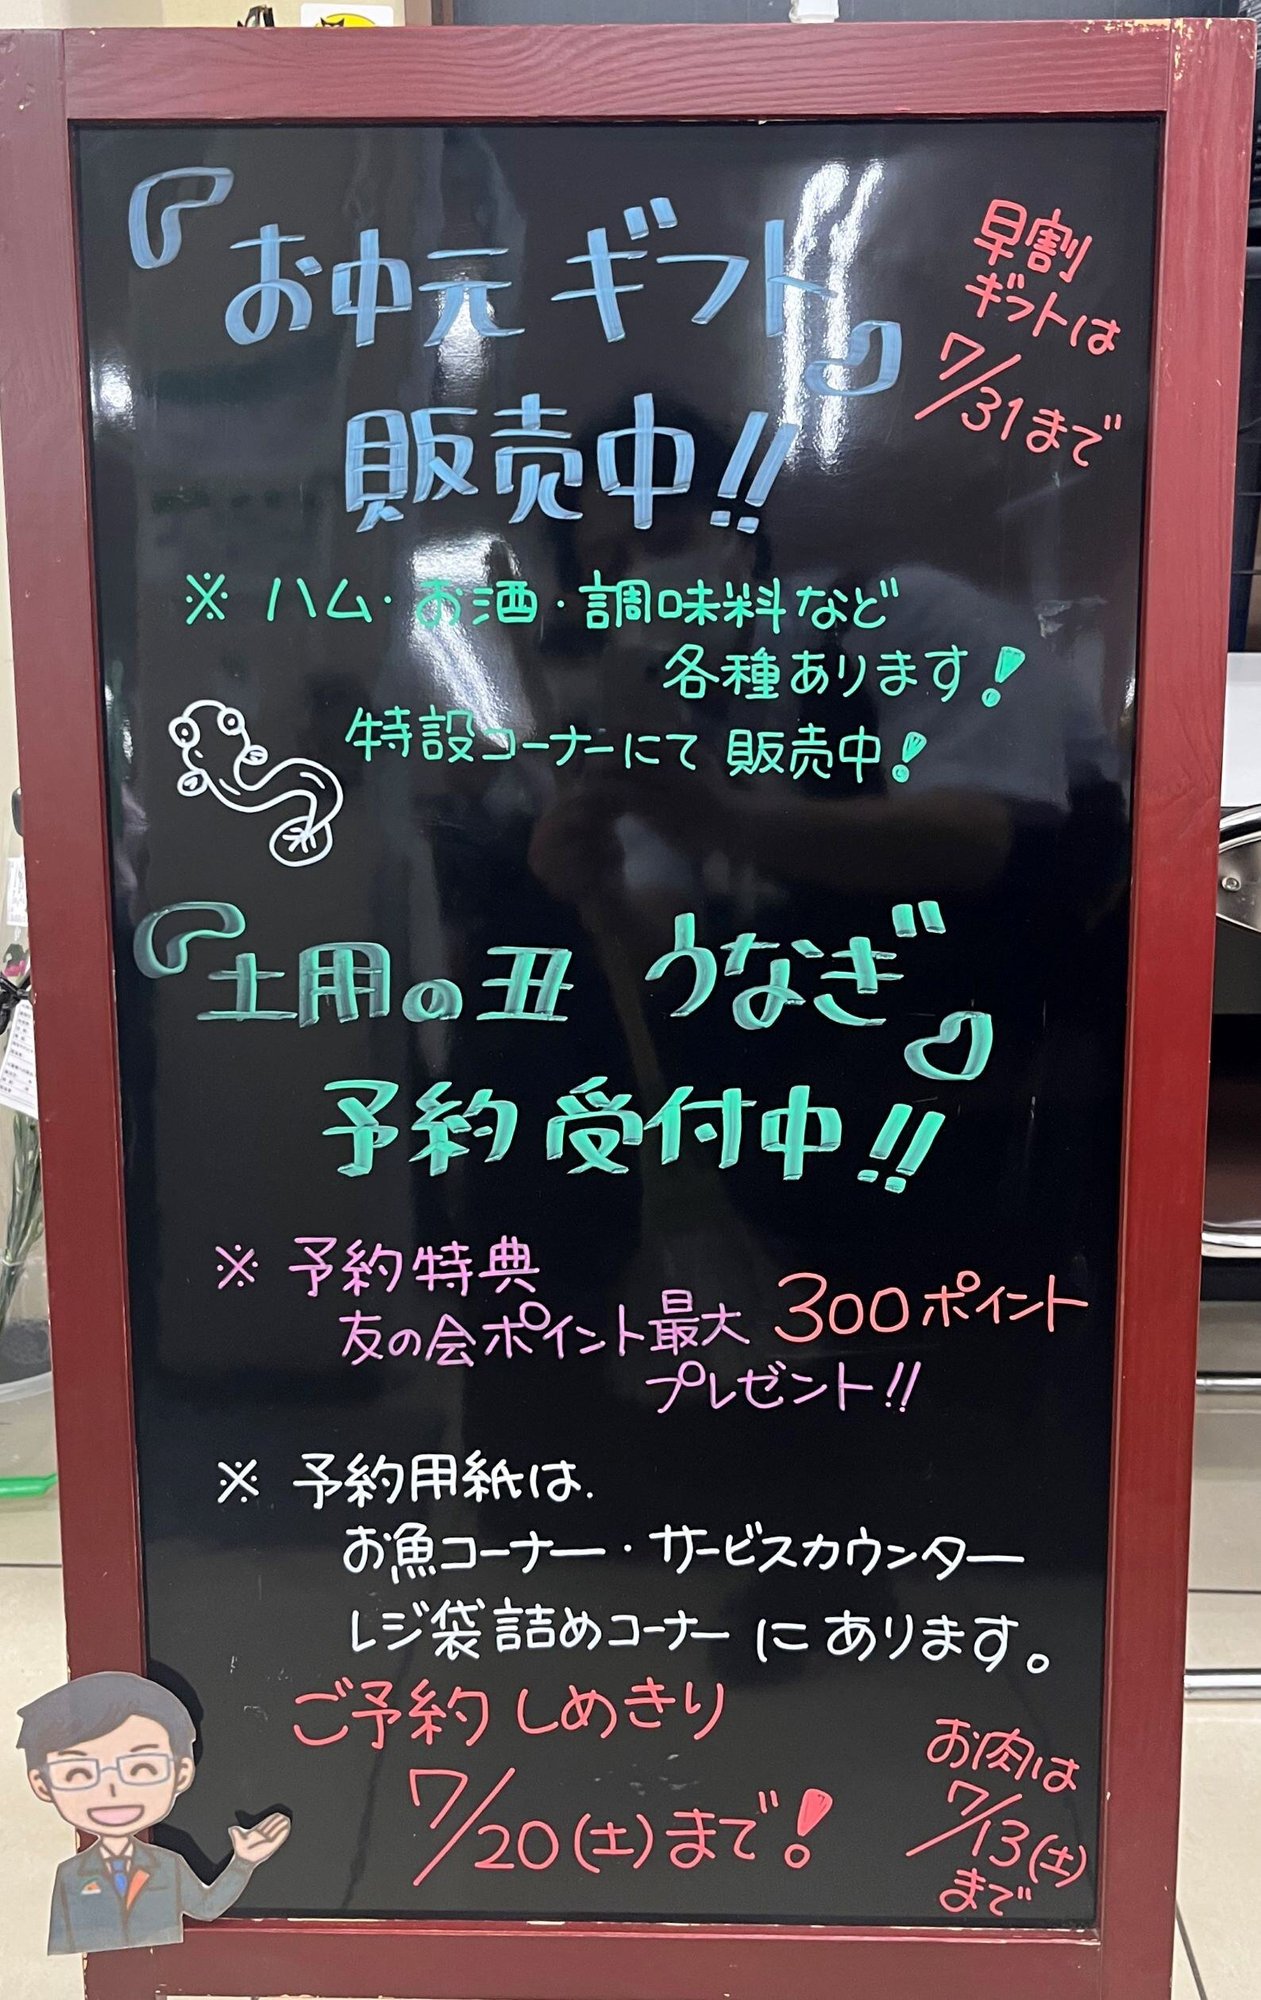 『お中元ギフト』
販売中!!
早割
ギフトは
7/31まで
※ ハム・お酒・調味料など
各種あります!
特設コーナーにて 販売中!
『土用の丑 うなぎ』
予約 受付中!!
※ 予約特典
友の会ポイント最大 300ポイント
プレゼント!!
※ 予約用紙は.
お魚コーナー・サービスカウンター
レジ袋詰めコーナー にあります。
ご予約 しめきり
7/20(土)まで!
お肉は
7/13(土)
まで